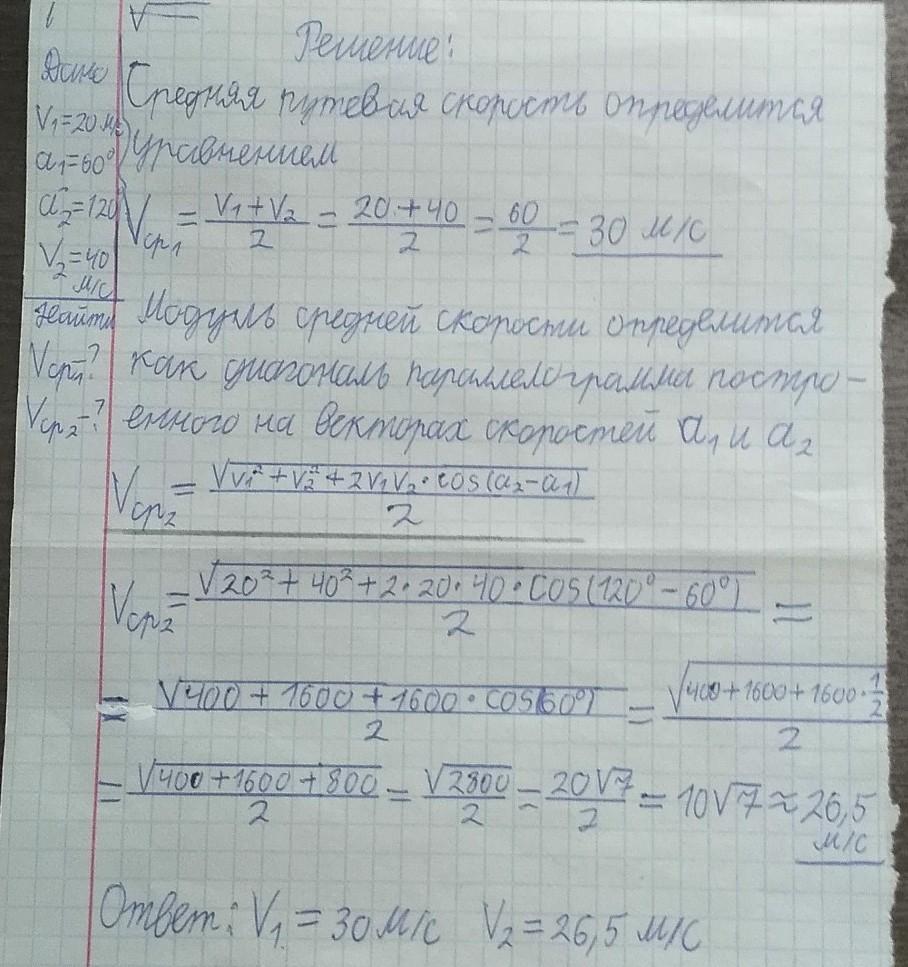 Решение:
Дано
V₁=20 м/с
a₁=60°
a₂=120
V₂=40
м/с
Найти
Vср₁-?
Vср₂-?
Средняя путевая скорость определится
уравнением
Vср₁ = (V₁+V₂)/2 = (20+40)/2 = 60/2 = 30 м/с
Модуль средней скорости определится
как диагональ параллелограмма постро-
енного на векторах скоростей a₁ и a₂
Vср₂ = √(V₁²+V₂²+2V₁V₂·cos(a₂-a₁))/2
Vср₂ = √(20²+40²+2·20·40·cos(120°-60°))/2 =
= √(400+1600+1600·cos(60°))/2 = √(400+1600+1600·1/2)/2
= √(400+1600+800)/2 = √2800/2 = 20√7/2 = 10√7 ≈ 26,5
м/с
Ответ: V₁ = 30 м/с V₂ = 26,5 м/с